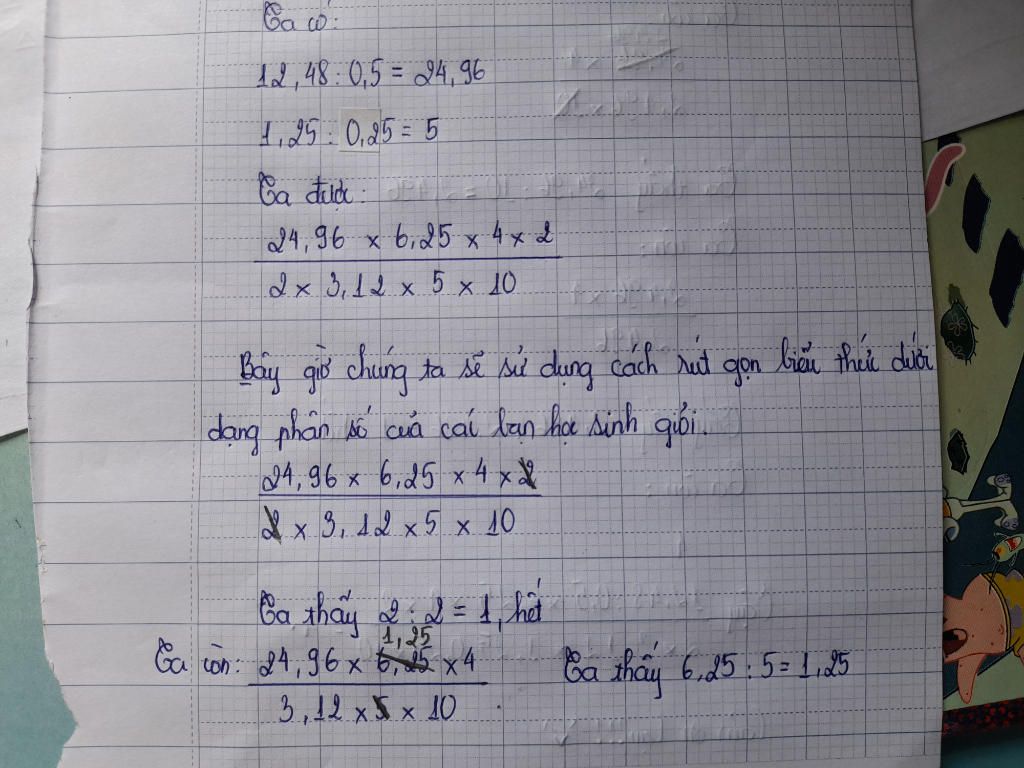 Ta có:
12,48 : 0,5 = 24,96
1,25 : 0,25 = 5
Ta được:
24,96 x 6,25 x 4 x 2
2 x 3,12 x 5 x 10
Bây giờ chúng ta sẽ sử dụng cách rút gọn biểu thức dưới
dạng phân số của các bạn học sinh giỏi.
24,96 x 6,25 x 4 x 2
2 x 3,12 x 5 x 10
Ta thấy 2 : 2 = 1, hết
1,25
Ta còn: 24,96 x 6,25 x 4 Ta thấy 6,25 : 5 = 1,25
3,12 x 5 x 10